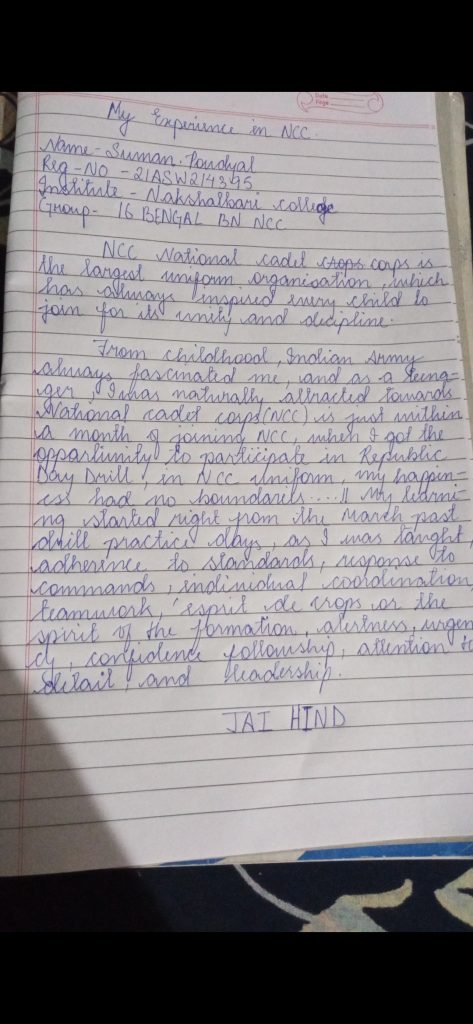 Date
Page
My Experience in NCC.
Name - Suman Poudyal
Reg - NO - 21ASW214395
Institute - Nakshalbari college
Group - 16 BENGAL BN NCC
NCC National cadet crops corps is
the largest uniform organisation, which
has always inspired every child to
join for its unity and discipline.
From childhood, Indian Army
always fascinated me, and as a teena-
ger, I was naturally attracted towards
National cadet corps (NCC) is just within
a month of joining NCC, when I got the
opportunity to participate in Republic
Day Drill, in NCC uniform, my happin-
ess had no boundarels.....!! My learni-
ng started right from the March past
drill practice days, as I was taught,
adherence to standards, response to
commands, individual coordination
teamwork, 'esprit de crops or the
spirit of the formation, alertness, urgen
cy, confidence followship, attention to
detail, and leadership.
JAI HIND